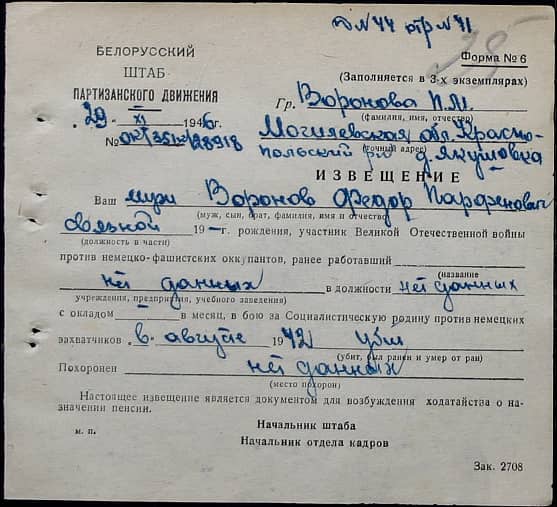 Д N 44 стр N 71
БЕЛОРУССКИЙ
ШТАБ
ПАРТИЗАНСКОГО ДВИЖЕНИЯ
Форма № 6
(Заполняется в 3-х экземплярах)
Гр. Воронова П.М.
(фамилия, имя, отчество)
„29“ XI 1946г.
Могилевская обл. Красно-
(точный адрес)
польский р-н д. Якушовка
ИЗВЕЩЕНИЕ
Ваш муж Воронов Федор Парфенович
(муж, сын, брат, фамилия, имя и отчество)
связной 19 — г. рождения, участник Великой Отечественной войны
(должность в части)
против немецко-фашистских оккупантов, ранее работавший
(название
нет данных в должности нет данных
учреждения, предприятия, учебного заведения)
с окладом — в месяц, в бою за Социалистическую родину против немецких
захватчиков в августе 1942 убит
(убит, был ранен и умер от ран)
Похоронен нет данных
(место похорон)
Настоящее извещение является документом для возбуждения ходатайства о на-
значении пенсии.
м. п.
Начальник штаба
Начальник отдела кадров
Зак. 2708